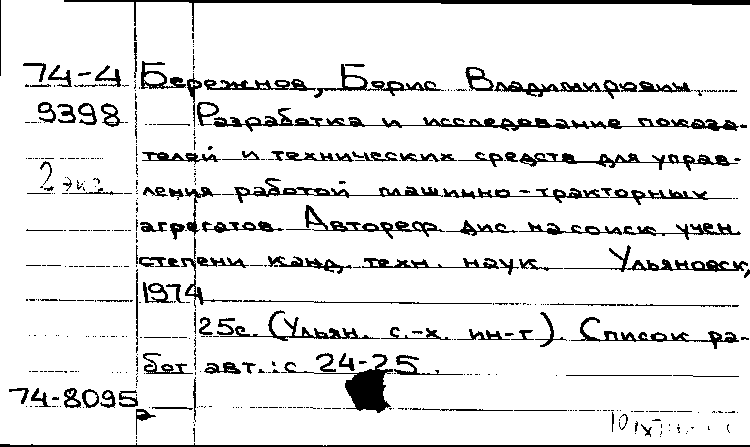 74-4 Бережнов, Борис Владимирович.
9398 Разработка и исследование показа-
телей и технических средств для управ-
2 экз. ления работой машинно-тракторных
агрегатов. Автореф. дис. на соиск. учен.
степени канд. техн. наук. Ульяновск,
1974
25с. (Ульян. с.-х. ин-т). Список ра-
бот авт.: с 24-25.
74-8095